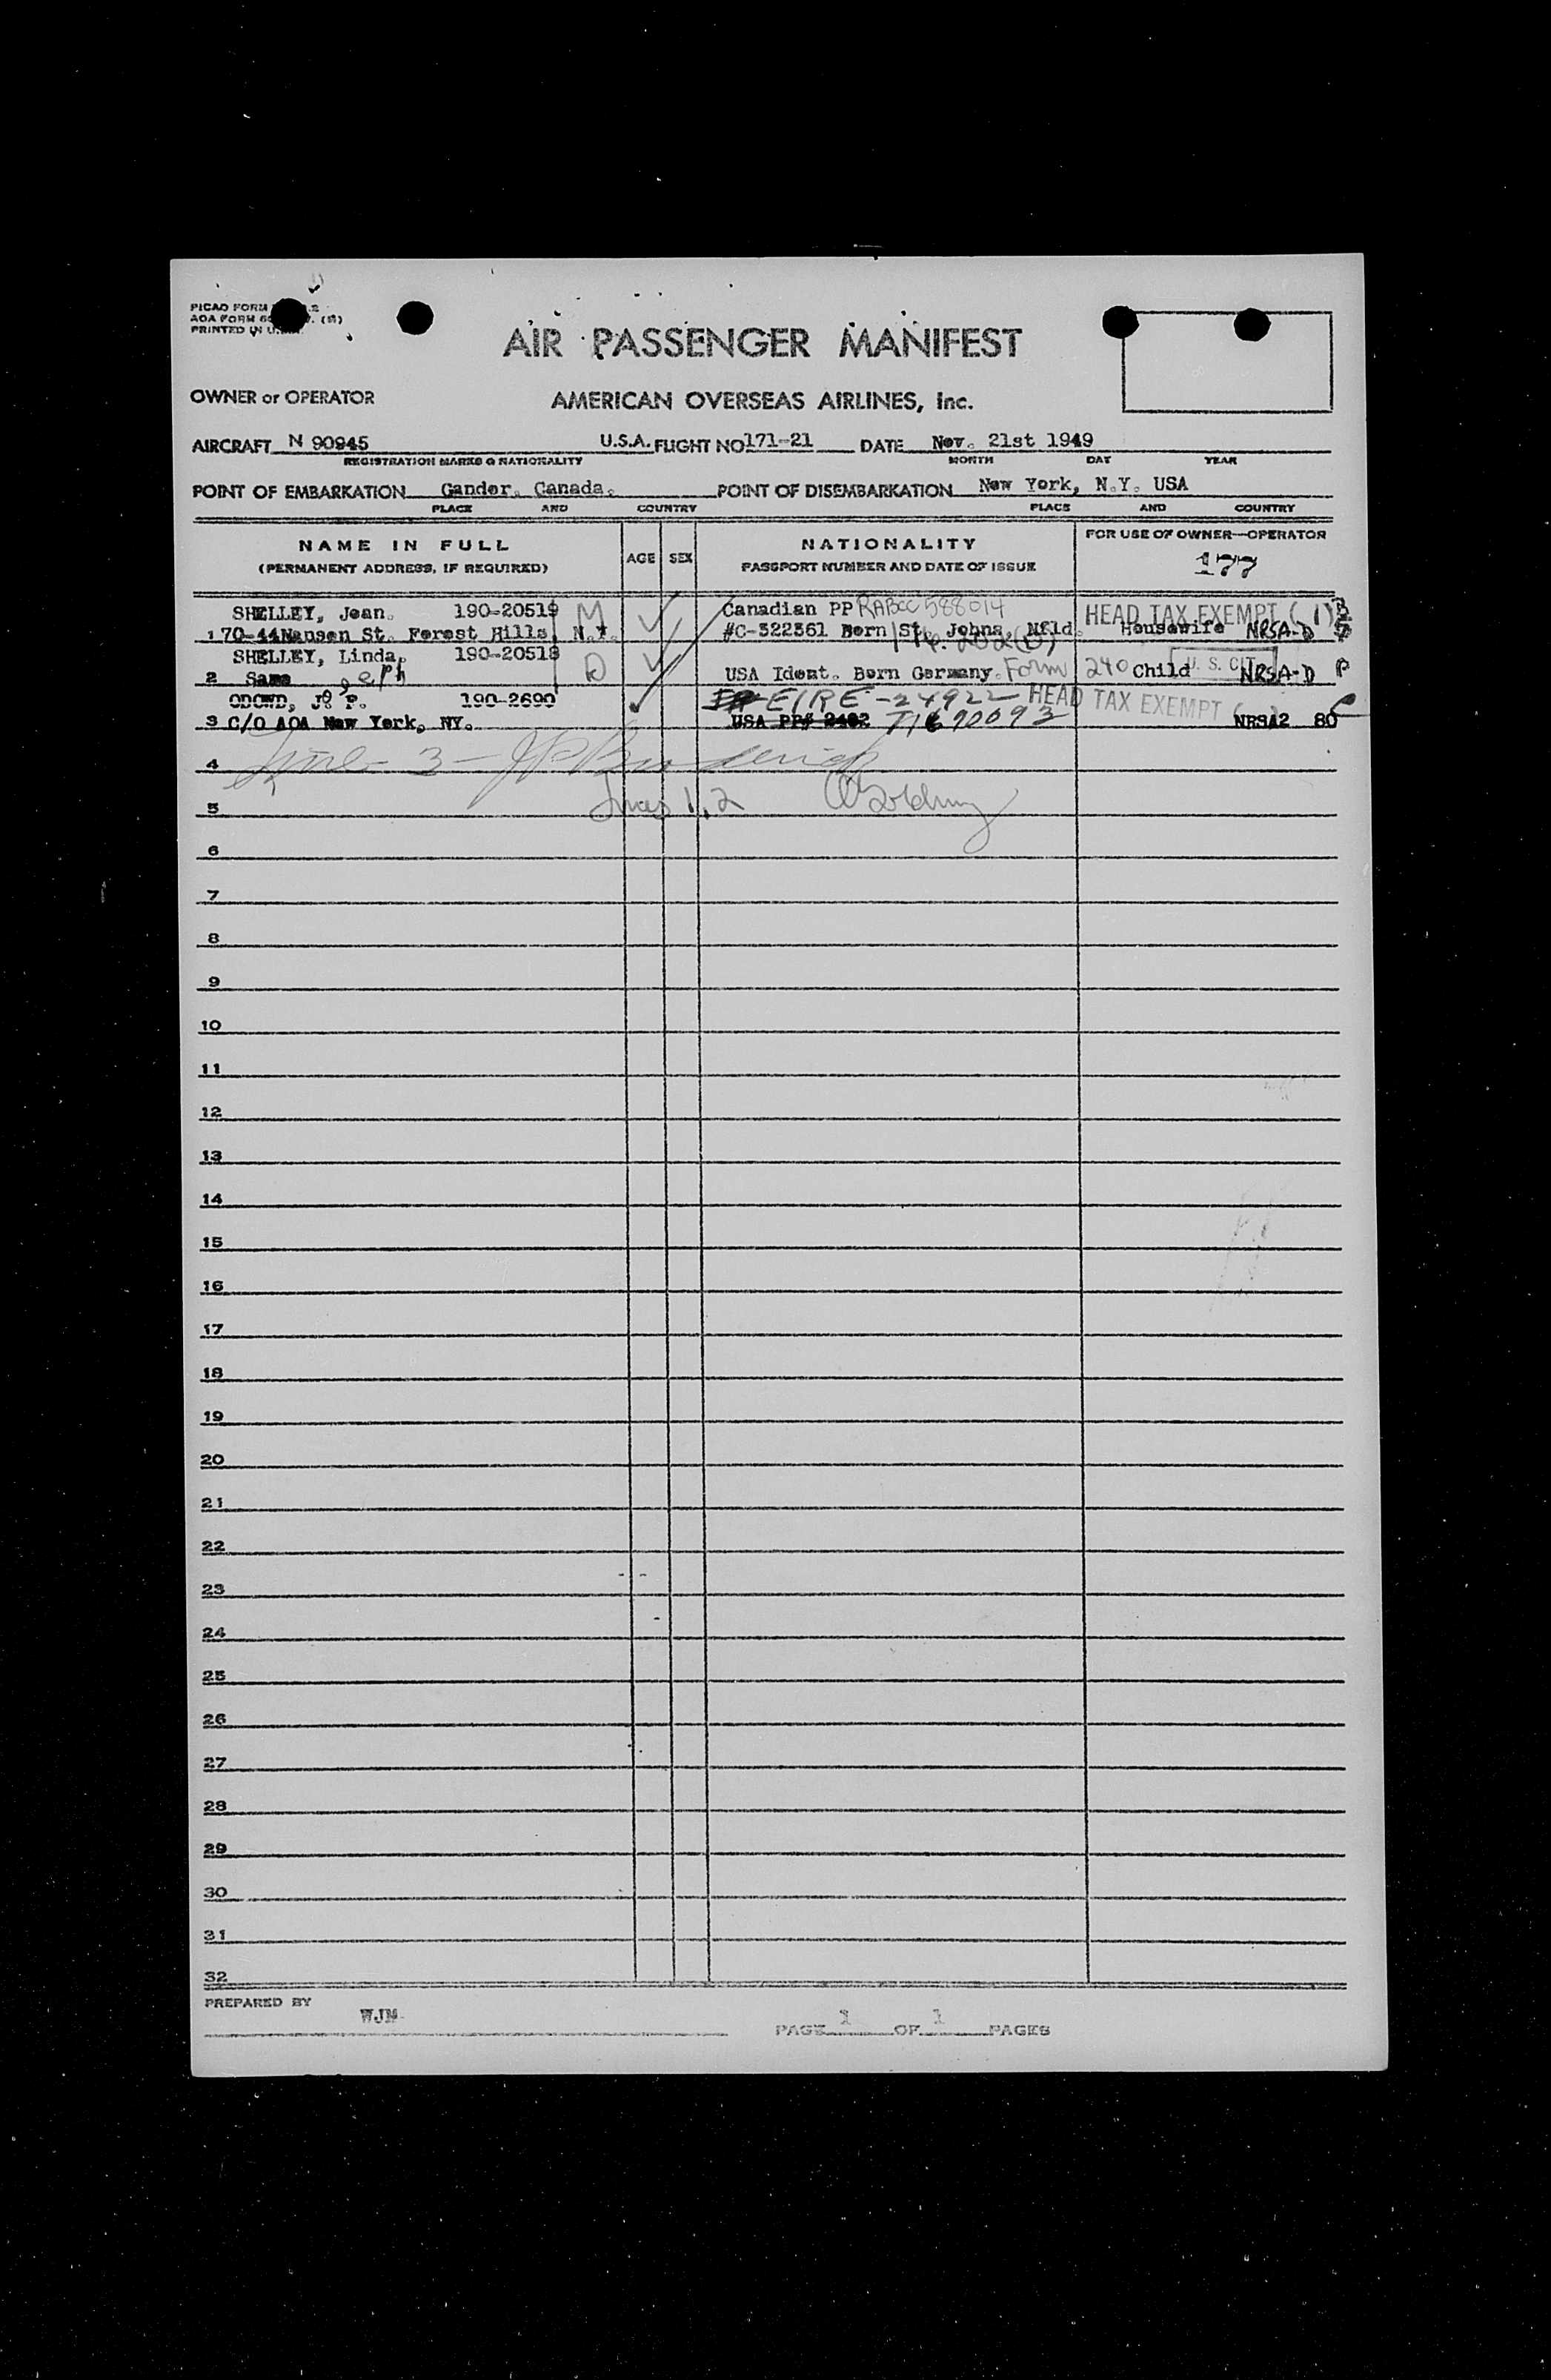 PICAO FORM
AOA FORM
PRINTED IN U.S.A.
AIR PASSENGER MANIFEST
OWNER or OPERATOR
AMERICAN OVERSEAS AIRLINES, Inc.
AIRCRAFT N 90945 U.S.A. FLIGHT NO 171-21 DATE Nov. 21st 1949
REGISTRATION MARKS & NATIONALITY MONTH DAY YEAR
POINT OF EMBARKATION Gander. Canada. POINT OF DISEMBARKATION New York, N.Y. USA
PLACE AND COUNTRY PLACE AND COUNTRY
NAME IN FULL
(PERMANENT ADDRESS, IF REQUIRED)
AGE SEX
NATIONALITY
PASSPORT NUMBER AND DATE OF ISSUE
FOR USE OF OWNER—OPERATOR
177
SHELLEY, Jean. 190-20519 M Canadian PP RABCC 588014 HEAD TAX EXEMPT (1)
1 70-44 Nansen St. Forest Hills, N.Y. #C-322361 Born St. Johns, Nfld. Housewife NRSA-D
SHELLEY, Linda. 190-20518
2 Same D USA Ident. Born Germany. Form 240 Child U. S. CIT. NRSA-D P
ODOWD, J. P. 190-2690 EIRE -24922 HEAD TAX EXEMPT
3 C/O AOA New York, NY. USA PP# 2482 T1690093 NRSA2 80
4 Line 3 -
5 Lines 1,2
6
7
8
9
10
11
12
13
14
15
16
17
18
19
20
21
22
23
24
25
26
27
28
29
30
31
32
PREPARED BY WJM
PAGE 1 OF 1 PAGES